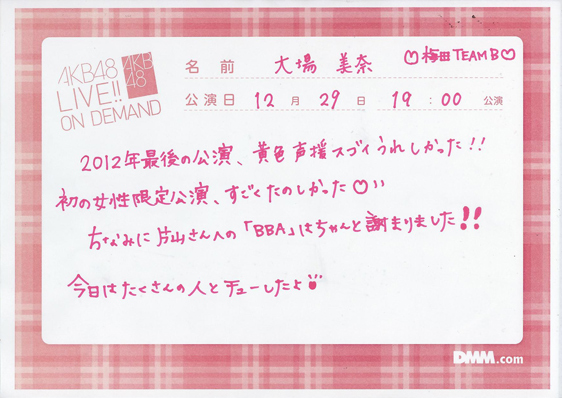 AKB48
LIVE!!
ON DEMAND
AKB
48
名前 大場 美奈 ♡梅田TEAM B♡
公演日 12月29日 19:00 公演
2012年最後の公演、黄色声援スゴイうれしかった!!
初の女性限定公演、すごくたのしかった♡!!
ちなみに片山さんへの「BBA」はちゃんと謝まりました!!
今日はたくさんの人とチューしたよ
DMM.com